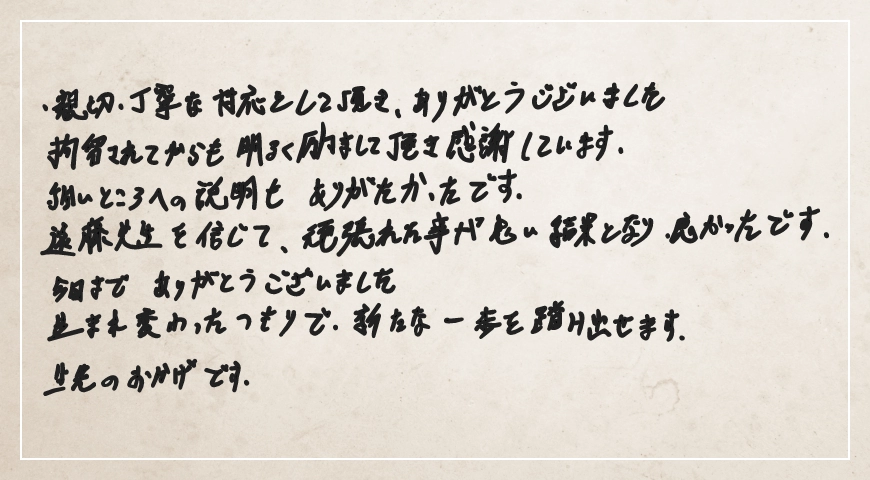 ・親切・丁寧な対応をして頂き、ありがとうございました
拘留されてからも明るく励まして頂き感謝しています.
細いところへの説明もありがたかったです.
遠藤先生を信じて、頑張れた事が良い結果となり.良かったです.
今日までありがとうございました
生まれ変わったつもりで.新たな一歩を踏み出せます.
先生のおかげです.